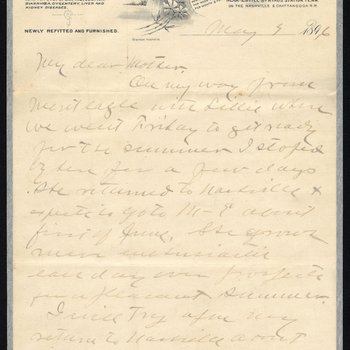 DIARRHŒA, DYSENTERY, LIVER AND
KIDNEY DISEASES.
NEWLY REFITTED AND FURNISHED.
ON THE NASHVILLE & CHATTANOOGA R.R.
May 9 1896
My dear Mother
On my way from
Monteagle with Lillie where
we went Friday to get ready
for the summer I stoped
here for a few days
She returned to Nashville &
expects to go to M-E about
first of June. She grows
more enthusiastic
each day over prospects
for a pleasant summer.
I will try after my
return to Nashville about